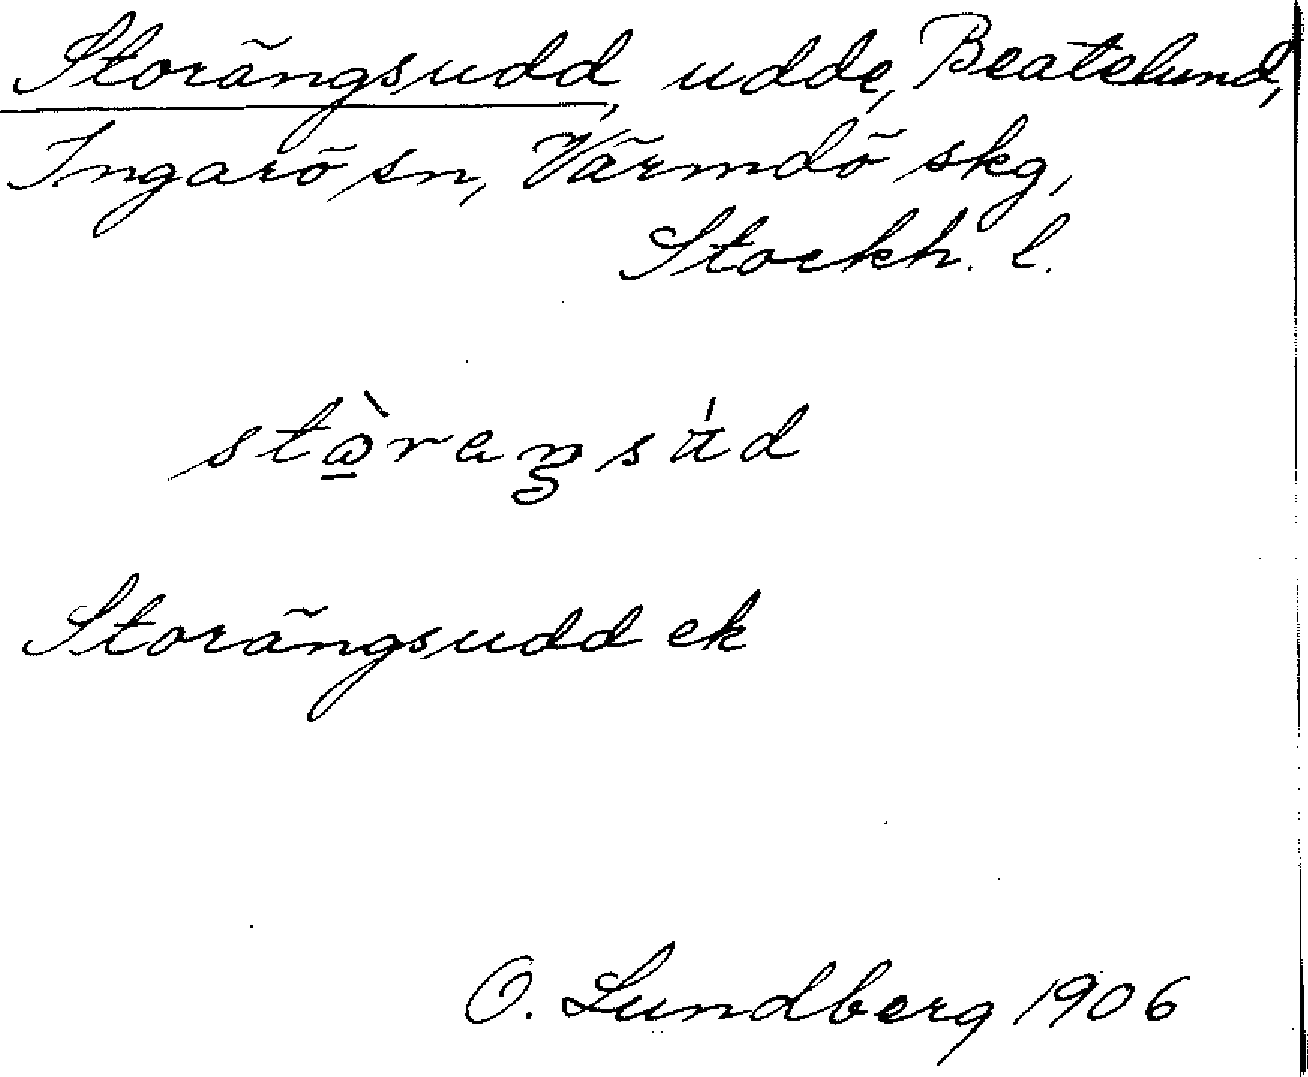 Storängsudd, udde, Beatelund,
Ingarö sn, Värmdö skg,
Stockh. l.
stὼ̲raŋsu̇́d
Storängsudd ek
O. Lundberg 1906